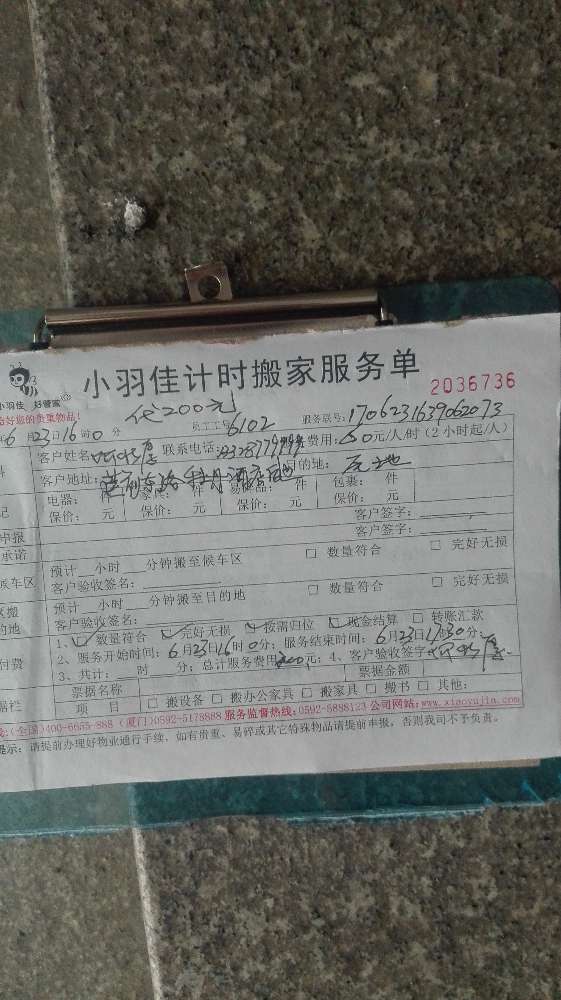 小羽佳计时搬家服务单
2036736
小羽佳 好管家
代200元
您的贵重物品!
员工工号 6102 服务联号: 1706231639062073
6月23日16时0分
客户姓名 联系电话: 费用: 60元/人/时(2小时起/人)
客户地址: 目的地: 元地
电器: 件 家具: 件 易碎品: 件 包裹: 件
保价: 元 保价: 元 保价: 元 保价: 元
客户签字:
申报
承诺 客户签字:
预计 小时 分钟搬至候车区 □ 数量符合 □ 完好无损
候车区 客户验收签名:
预计 小时 分钟搬至目的地 □ 数量符合 □ 完好无损
的地 客户验收签名:
1、 数量符合 完好无损 按需归位 现金结算 □ 转账汇款
付费 2、服务开始时间: 6月23日16时0分; 服务结束时间: 6月23日17时30分;
3、共计: 时 分; 总计服务费用 200元; 4、客户验收签字
票据名称 票据金额
项 目 □ 搬设备 □ 搬办公家具 □ 搬家具 □ 搬书 □ 其他:
(全国)400-6655-888 (厦门)0592-5175888 服务监督热线:0592-5888123 公司网站:www.xiaoyujia.com
提示: 请提前办理好物业通行手续,如有贵重、易碎或其它特殊物品请提前申报,否则我司不予负责。